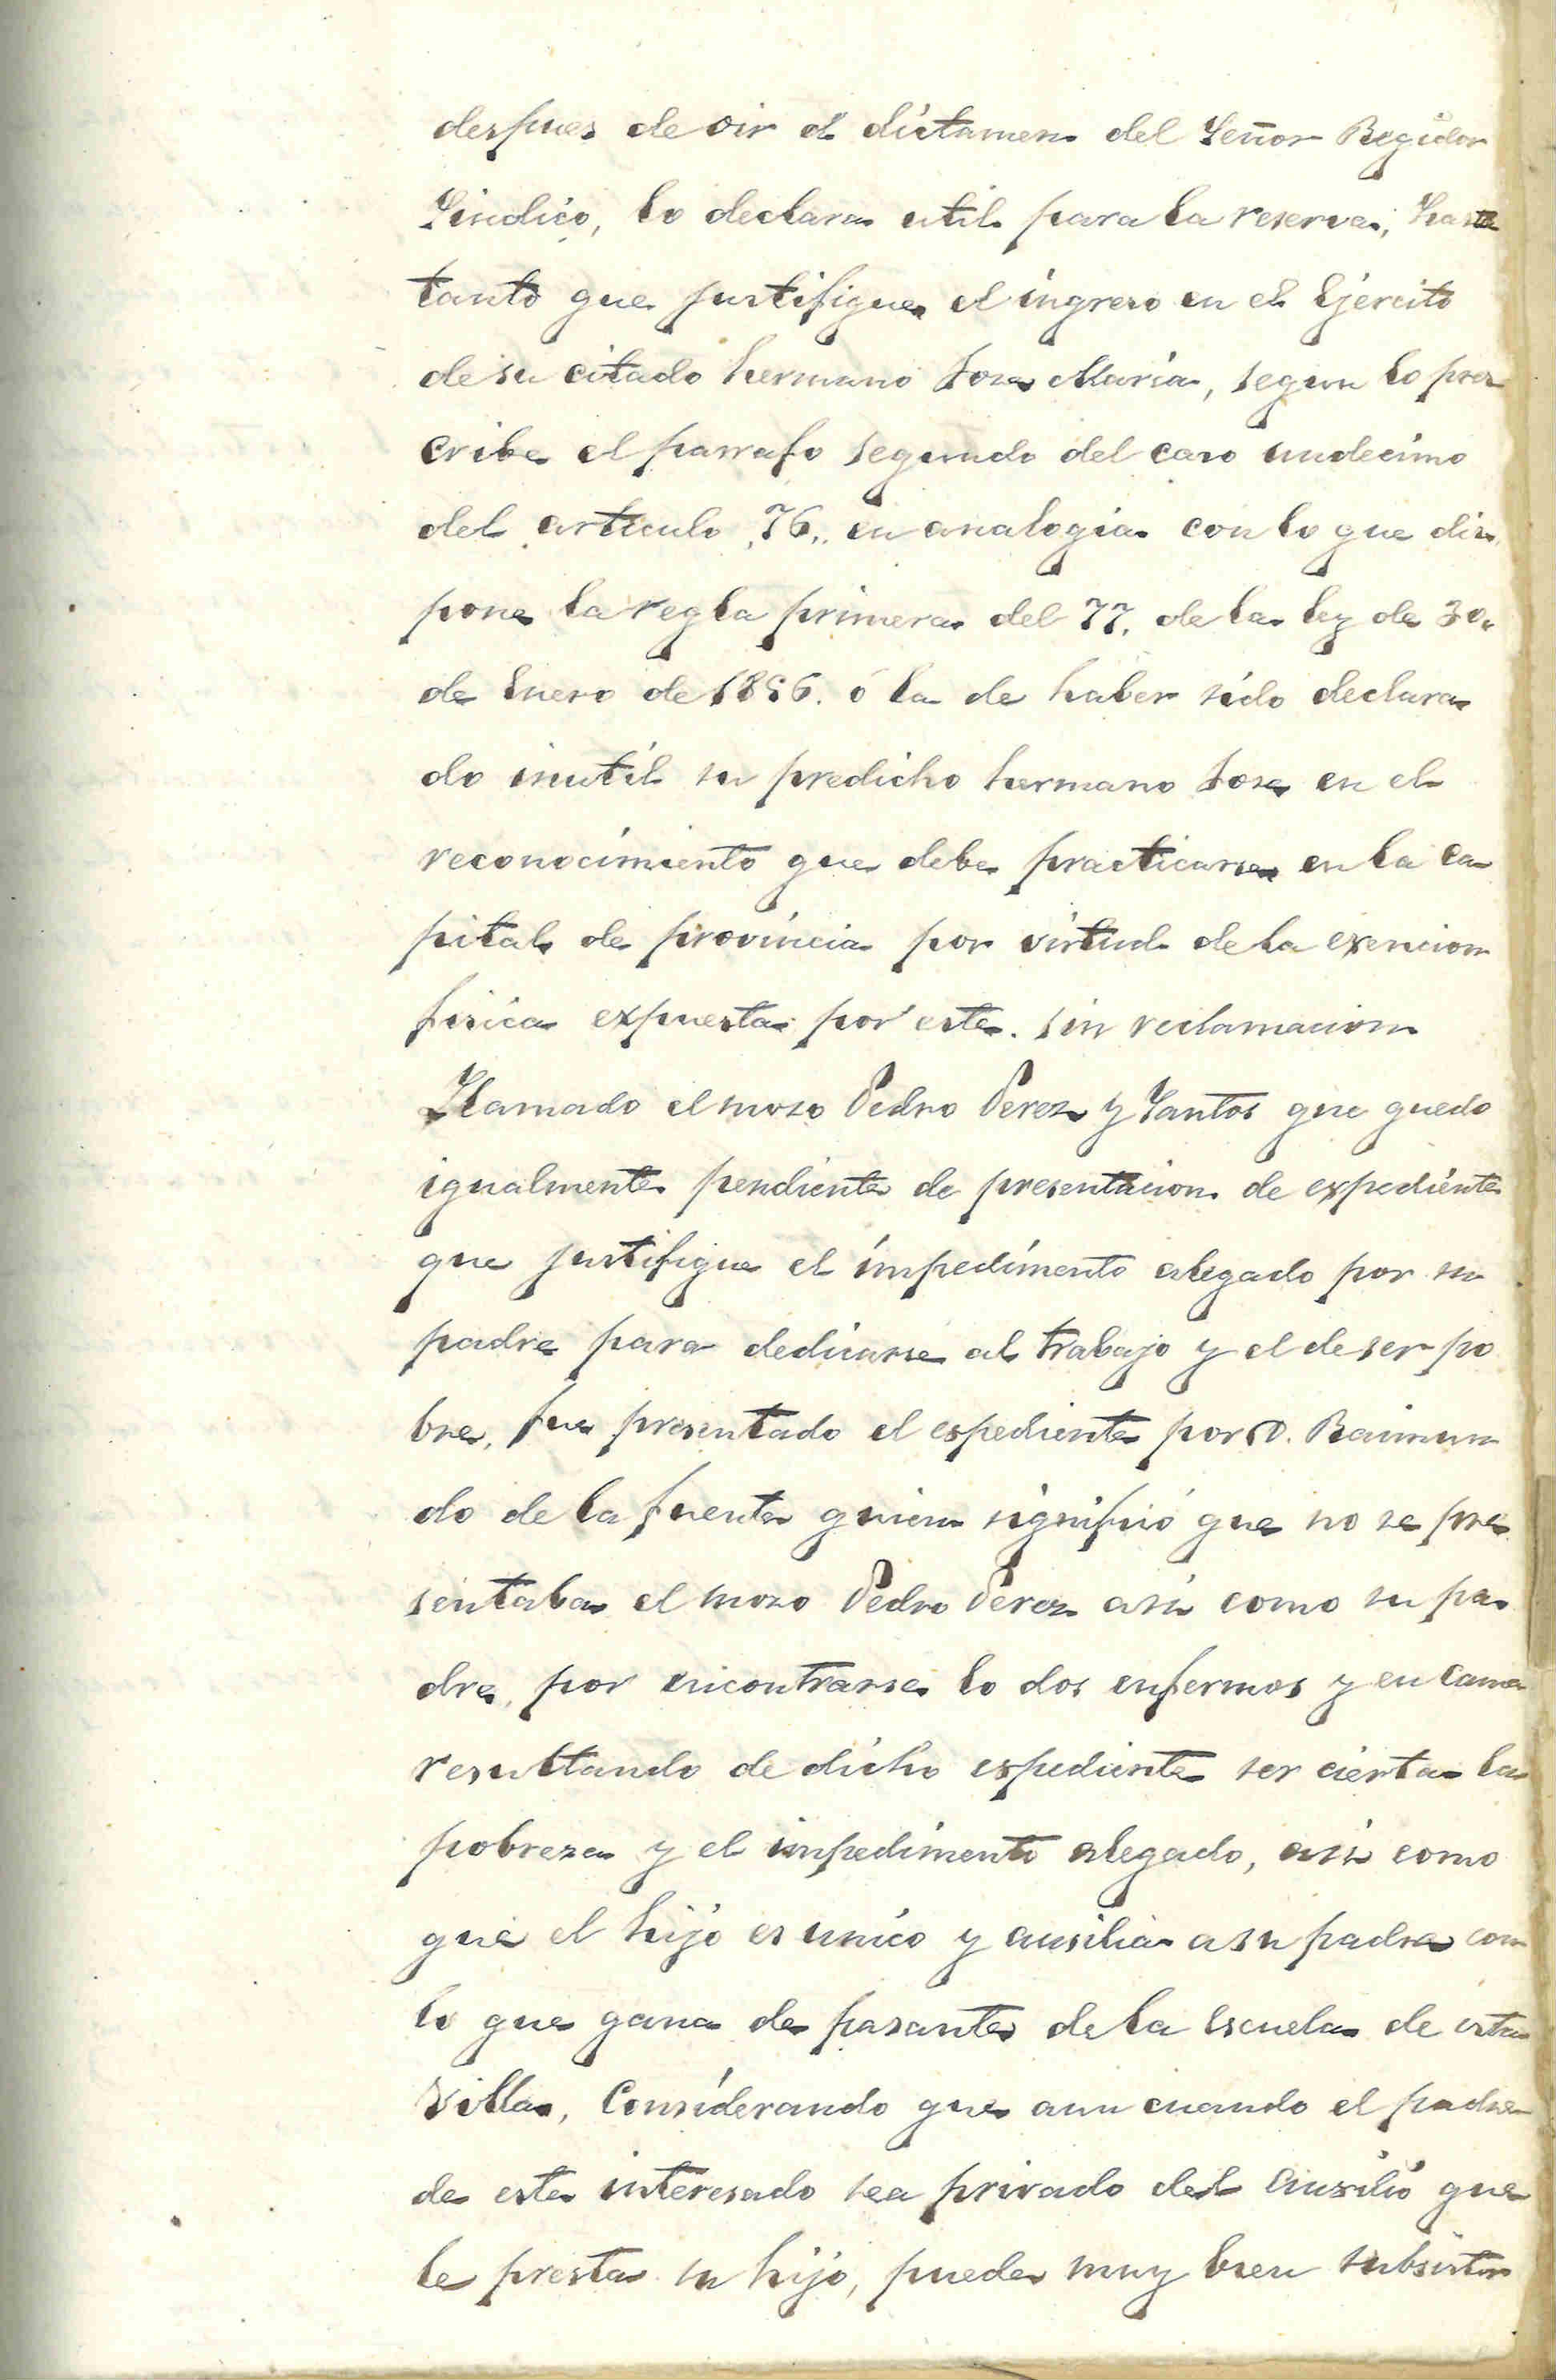 despues de oir el dictamen del Señor Regidor
Sindico, lo declara util para la reserva, hasta
tanto que justifique el ingreso en el Ejército
de su citado hermano Jose Maria, segun lo pres
cribe el parrafo segundo del caso undecimo
del articulo 76, en analogia con lo que dis
pone la regla primera del 77, de la ley de 30,
de Enero de 1856. ó la de haber sido declara
do inutil su predicho hermano Jose en el
reconocimiento que debe practicarse en la ca
pital de provincia por virtud de la esencion
fisica expuesta por este. sin reclamacion
Llamado el mozo Pedro Perez y Santos que quedo
igualmente pendiente de presentacion de expediente
que justifique el impedimento alegado por su
padre para dedicarse al trabajo y el de ser po
bre, fue presentado el espediente por D. Raimun
do de la fuente quien significó que no se pre
sentaba el mozo Pedro Perez asi como su pa
dre, por encontrarse lo dos enfermos y en cama
resultando de dicho espediente ser cierta la
pobreza y el impedimento alegado, asi como
que el hijo es unico y ausilia a su padre con
lo que gana de pasante de la Escuela de esta
Villa, Considerando que aun cuando el padre
de este interesado sea privado del ausilio que
le presta su hijo, puede muy bien subsistir